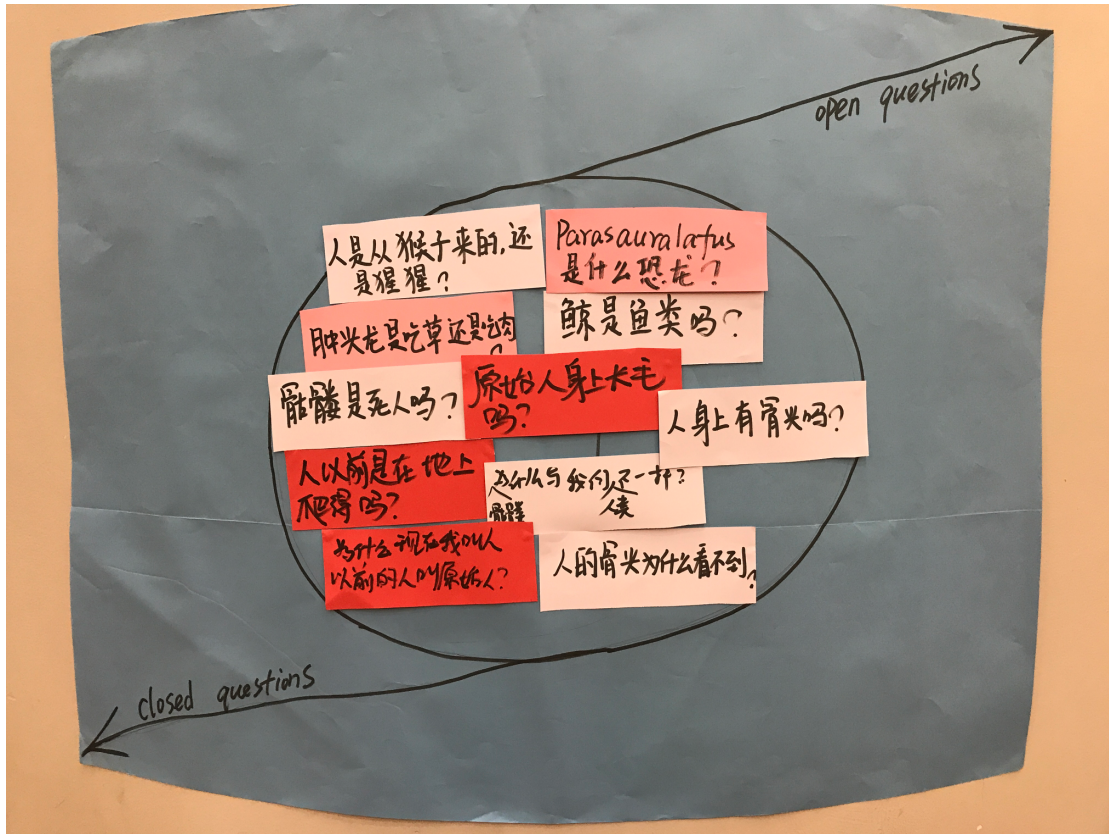 open questions
人是从猴子来的,还
是猩猩?
Parasauralafus
是什么恐龙?
肿头龙是吃草还是吃肉
?
鲸是鱼类吗?
骷髅是死人吗?
原始人身上长毛
吗?
人身上有骨头吗?
人以前是在地上
爬得吗?
为什么与我们不一样?
骷髅 人类
为什么现在我叫人
以前的人叫原始人?
人的骨头为什么看不到?
closed questions